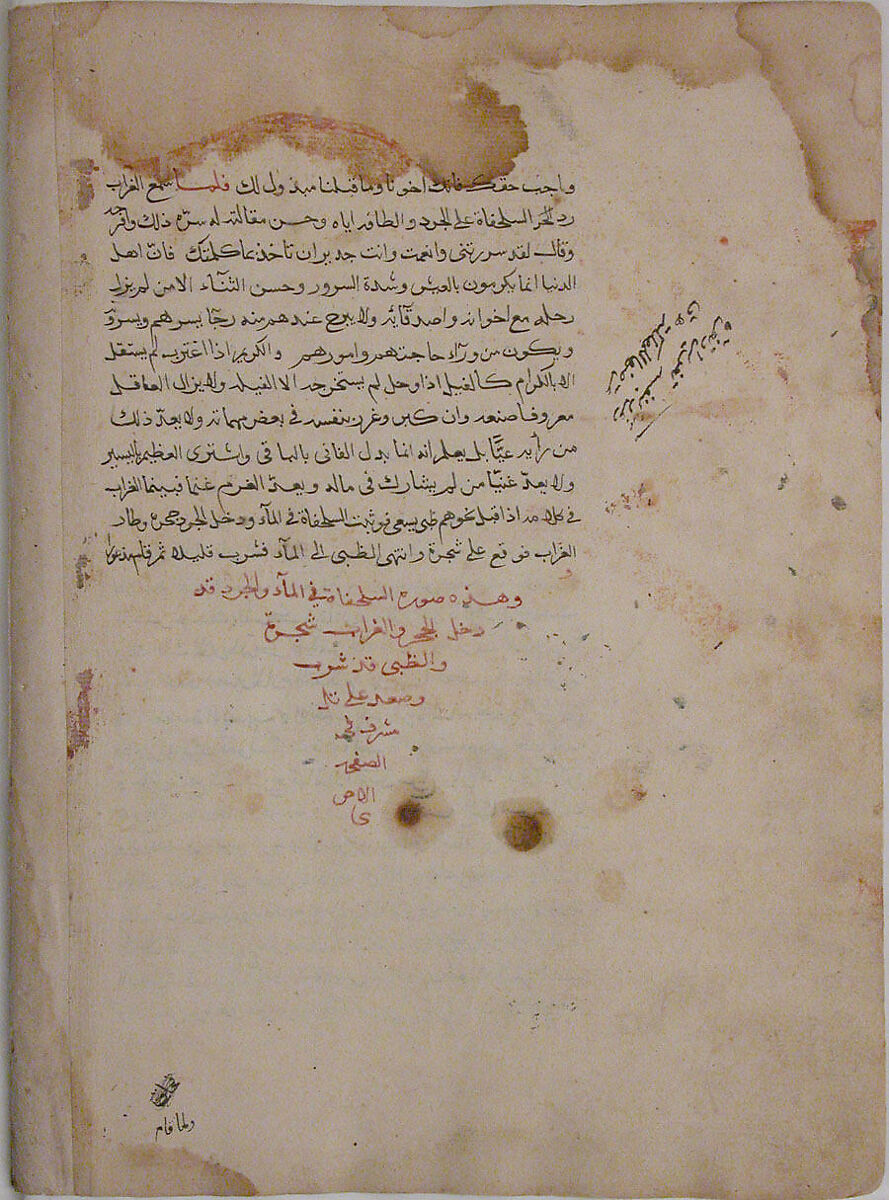 واجب حقك فانك اخونا وما قبلنا مبذول لك فلما سمع الغراب
رد السلحفاة على الجرد والطافه اياه وحسن مقالته له سره ذلك وافرحه
وقال لقد سررتنى وانعمت وانت جدير ان تاخذ عا كلمتك فان اهل
الدنيا انما يكرمون بالعيش وشدة السرور وحسن الثنآء الا من لم يزل
رحله مع اخوانه واصدقآئه ولا يبرح عندهم منه رجا يسرهم ويسروه
ويكون من ورآء حاجتهم وامورهم والكريم اذا اغترب لم يستقل
الا بالكرام كالفيل اذا وحل لم يستخرجه الا الفيله ولا يزال العاقل
معروفا صنعه وان كبر وغرر بنفسه في بعض مهماته ولا يعد ذلك
من رأيه عيًّا بل يعلم انه انما بدل الفانى بالباقى واشترى العظيم باليسير
ولا يعد غنيا من لم يشارك فى ماله ويعد الغرم غنما فبينما الغراب
فى كلامه اذا قبل نحوهم ظبى يسعى فوثبت السلحفاة في المآء ودخل الجرد جحره وطار
الغراب فوقع على شجرة وانتهى الظبى الى المآء فشرب قليلا ثم قام مذعورا
وهذه صورة السلحفاة في المآء والجرد قد
دخل الجحر والغراب شجرة
والظبى قد شرب
وصعد على تل
مشرف في
الصفحه
الاخرى
ولما قام